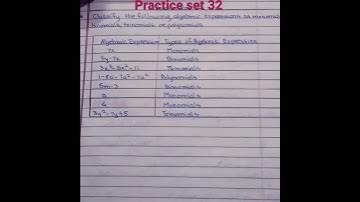 Practice set 32
Classify the following algebraic expressions as monomials
binomials, trinomials or polynomials.
Algebraic Expression Types of Algebraic Expression
7x Monomials
5y-7z Binomials
3x³-5x²-11 Trinomials
1-8a-7a²-7a³ Polynomials
5m-3 Binomials
a Monomials
4 Monomials
3y²-7y+5 Trinomials